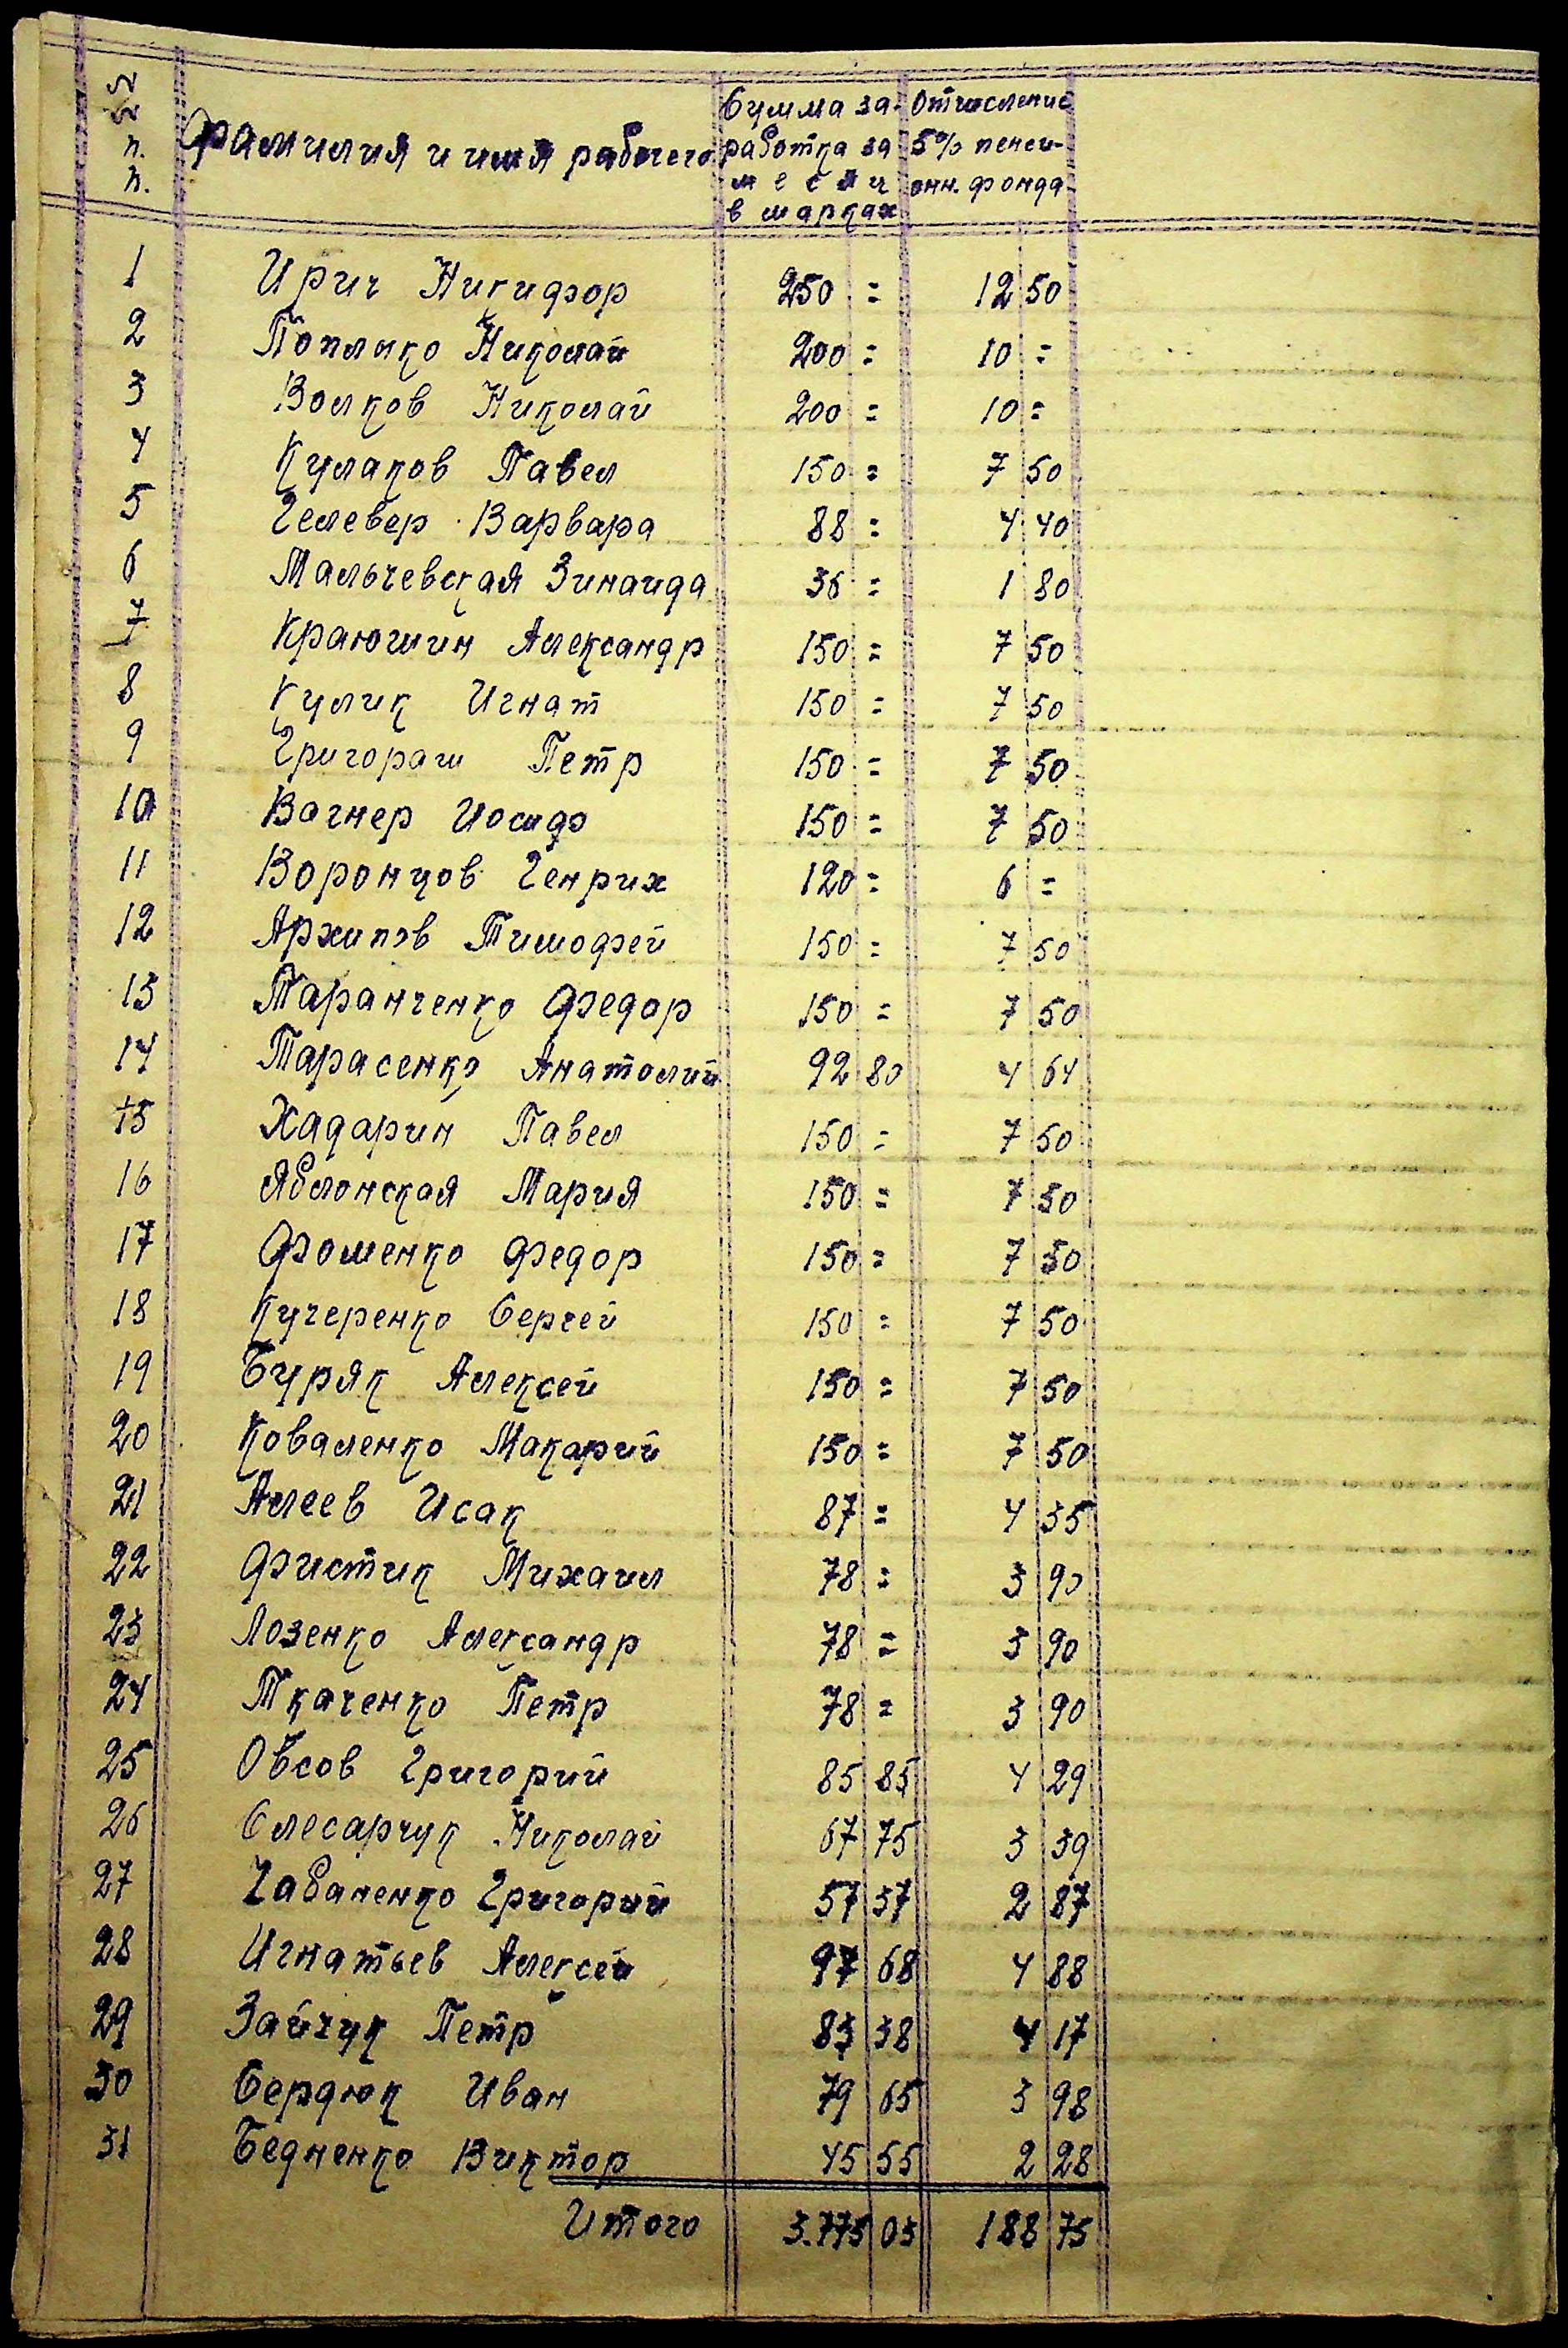 №№ п.п. Фамилия и имя рабочего Сумма заработка за месяц в марках Отчисление 5% пенсионн. фонда
1 Ирич Никифор 250 = 12 50
2 Поплико Николай 200 = 10 =
3 Волков Николай 200 = 10 =
4 Кулаков Павел 150 = 7 50
5 Гелевер Варвара 88 = 4 40
6 Мальчевская Зинаида 36 = 1 80
7 Краюшин Александр 150 = 7 50
8 Кулик Игнат 150 = 7 50
9 Григораш Петр 150 = 7 50
10 Вагнер Иосиф 150 = 7 50
11 Воронцов Генрих 120 = 6 =
12 Архипов Тимофей 150 = 7 50
13 Таранченко Федор 150 = 7 50
14 Тарасенко Анатолий 92 80 4 64
15 Хадарин Павел 150 = 7 50
16 Яблонская Мария 150 = 7 50
17 Фоменко Федор 150 = 7 50
18 Кучеренко Сергей 150 = 7 50
19 Буряк Алексей 150 = 7 50
20 Коваленко Макарий 150 = 7 50
21 Алеев Исак 87 = 4 35
22 Фистик Михаил 78 = 3 90
23 Лозенко Александр 78 = 3 90
24 Ткаченко Петр 78 = 3 90
25 Овсов Григорий 85 85 4 29
26 Слесарчук Николай 67 75 3 39
27 Чабаненко Григорий 57 37 2 87
28 Игнатьев Алексей 97 68 4 88
29 Зайчук Петр 83 38 4 17
30 Сердюк Иван 79 65 3 98
31 Бедненко Виктор 45 55 2 28
Итого 3.775 03 188 75